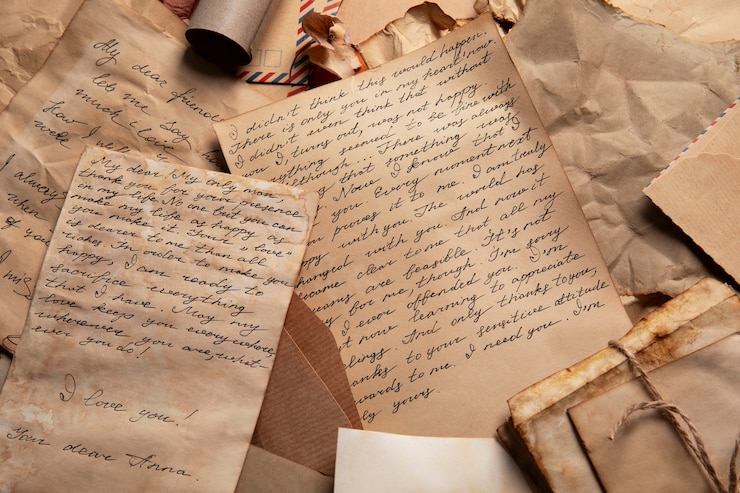 My dear friend
let me say
much I
How I
were
I always
when
of you
I miss
My dear! My only man,
thank you for your presence
in my life. No one but you can
make my life as happy as
you make it. Your love
is dearer to me than all
riches. In order to make you
happy, I am ready to
sacrifice everything
that I have. May my
love keep you everywhere,
wherever you are, what-
ever you do!
I love you!
Your dear Anna.
I didn't think this would happen.
There is only you in my heart now.
I didn't even think that without
you I, turns out, was not happy
erything seemed to be fine with
although... There was always
ng that something was
Now I know that I
you. Every moment next
proves it to me. I am truly
ppy with you. The world has
hanged with you. And now it
came clear to me that all my
eams are feasible. It's not
y for me, though. I'm sorry
I ever offended you. I'm
st now learning to appreciate
lings. And only thanks to you,
anks to your sensitive attitude
wards to me. I need you. I'm
ly yours.